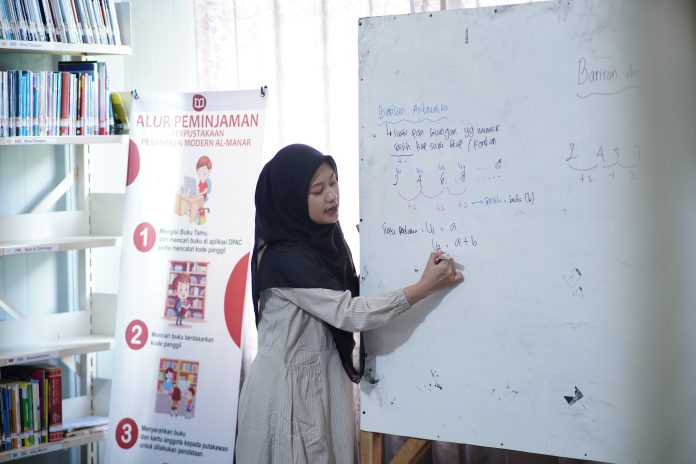 ALUR PEMINJAMAN
PERPUSTAKAAN
PESANTREN MODERN AL-MANAR
1
Mengisi Buku Tamu,
dan mencari buku di aplikasi OPAC
serta mencatat kode panggil
2
Mencari buku berdasarkan
kode panggil
3
Menyerahkan buku
dan kartu anggota kepada pustakawan
untuk dilakukan pendataan
Barisan Aritmatika
suatu bilangan yg
selisih tiap suku tetap / konstan
2 4 6 8
+2 +2 +2 → selisih = beda (b)
Suku pertama = U₁ = a
U₂ = a + b
Barisan dan
2 4
+2